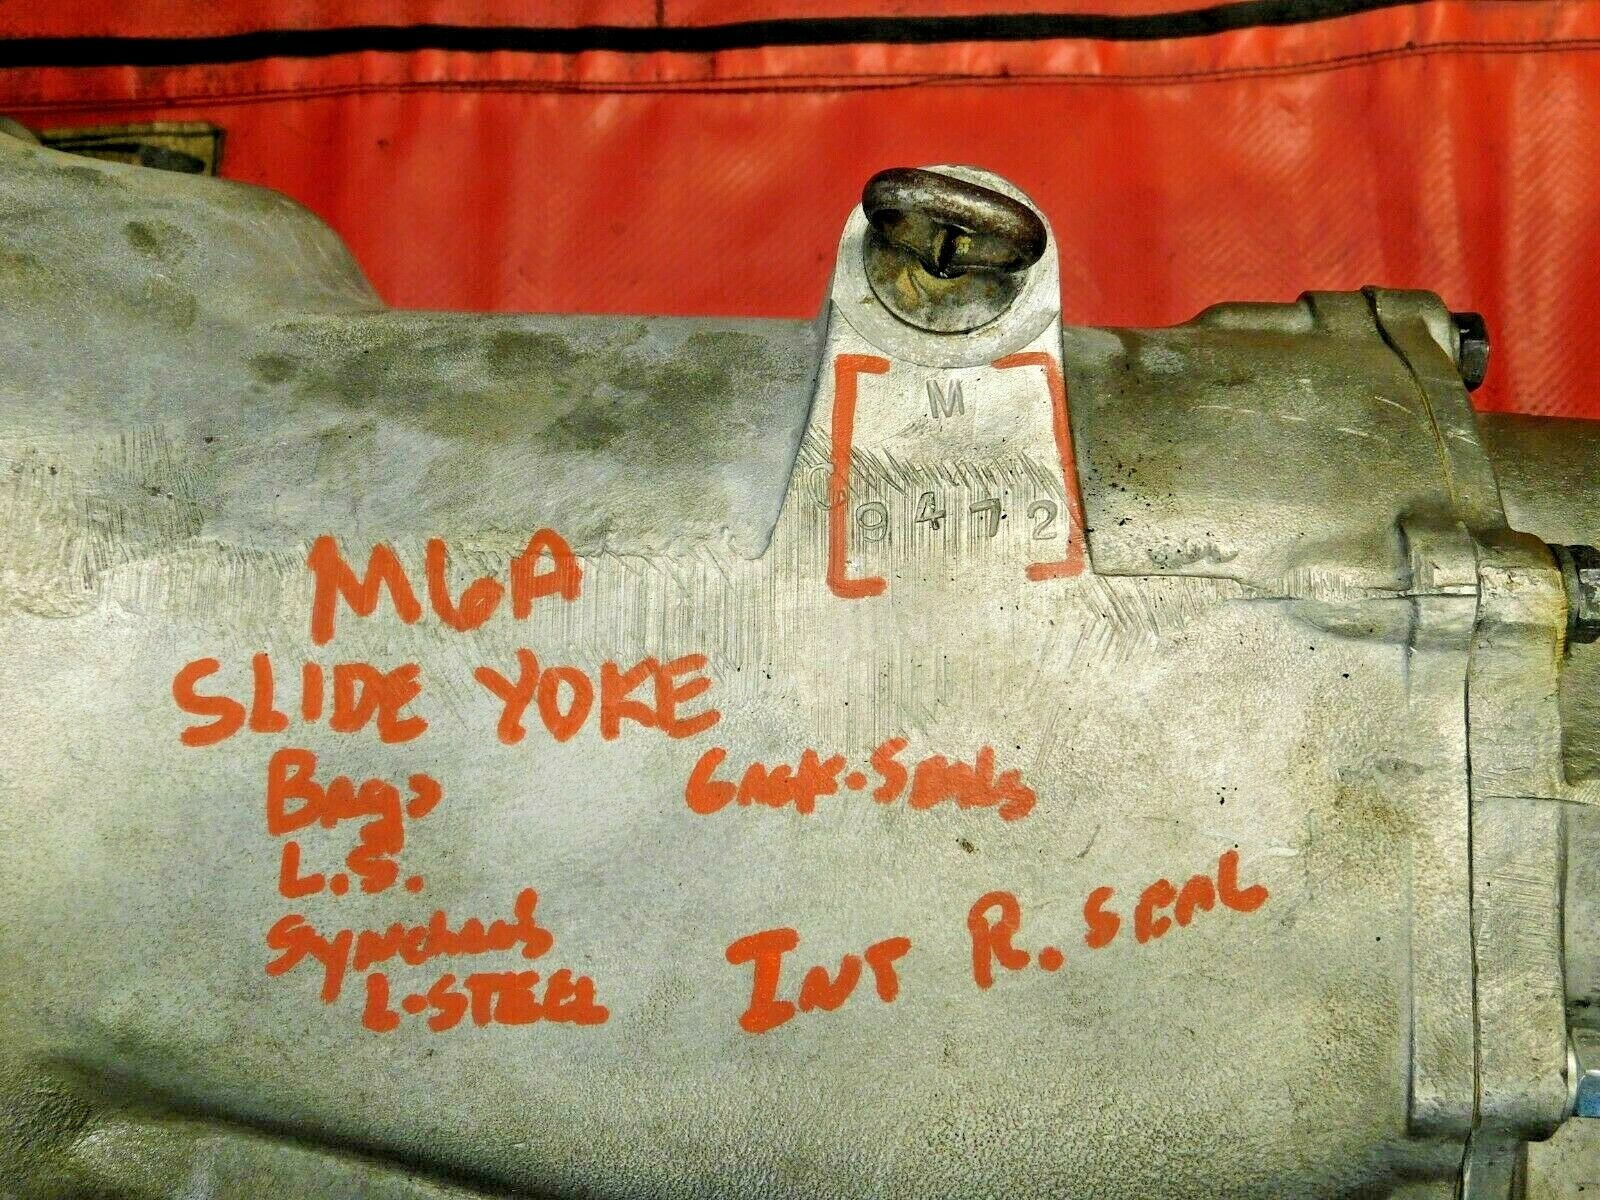 M
9472
MGA
SLIDE YOKE
BRGS
GASK. SEALS
L.S.
SYNCHROS
INT R. SEAL
L-STEEL